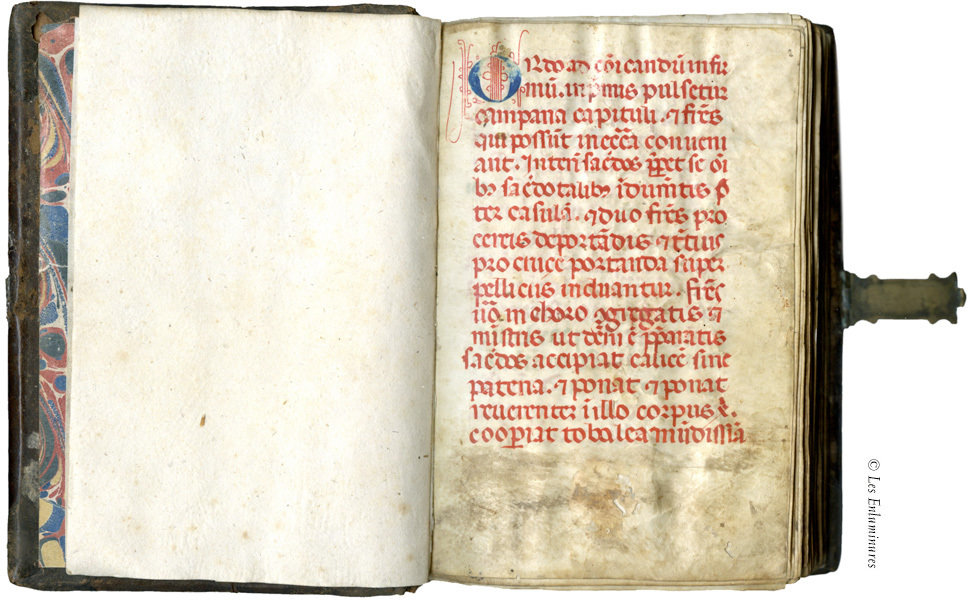 ORdo ad cōicandū infir
mū. in p̄mis pulsetur
campana capituli. ⁊ fr̄es
qui possūt in ecc̄a conueni
ant. Interī sac̄dos p̄p̄et se oī
bꝫ sac̄dotalibꝫ īdum̄tis p̄
ter casulā. ⁊ duo fr̄es pro
cereis deportādis ⁊ t̄tius
pro cruce portanda super
pelliciis induantur. fr̄es
u̅o in choro ꝯgregatis ⁊
mīstris ut dc̄m ē p̄paratis
sac̄dos accipiat calicē sine
patena. ⁊ ponat ⁊ ponat
reuerenter ī illo corpus x̄.
cooꝑiat tobalea mūdissīa
© Les Enluminures